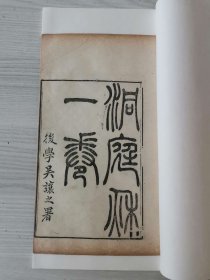 洞庭秌
一卷
後學吳讓之署